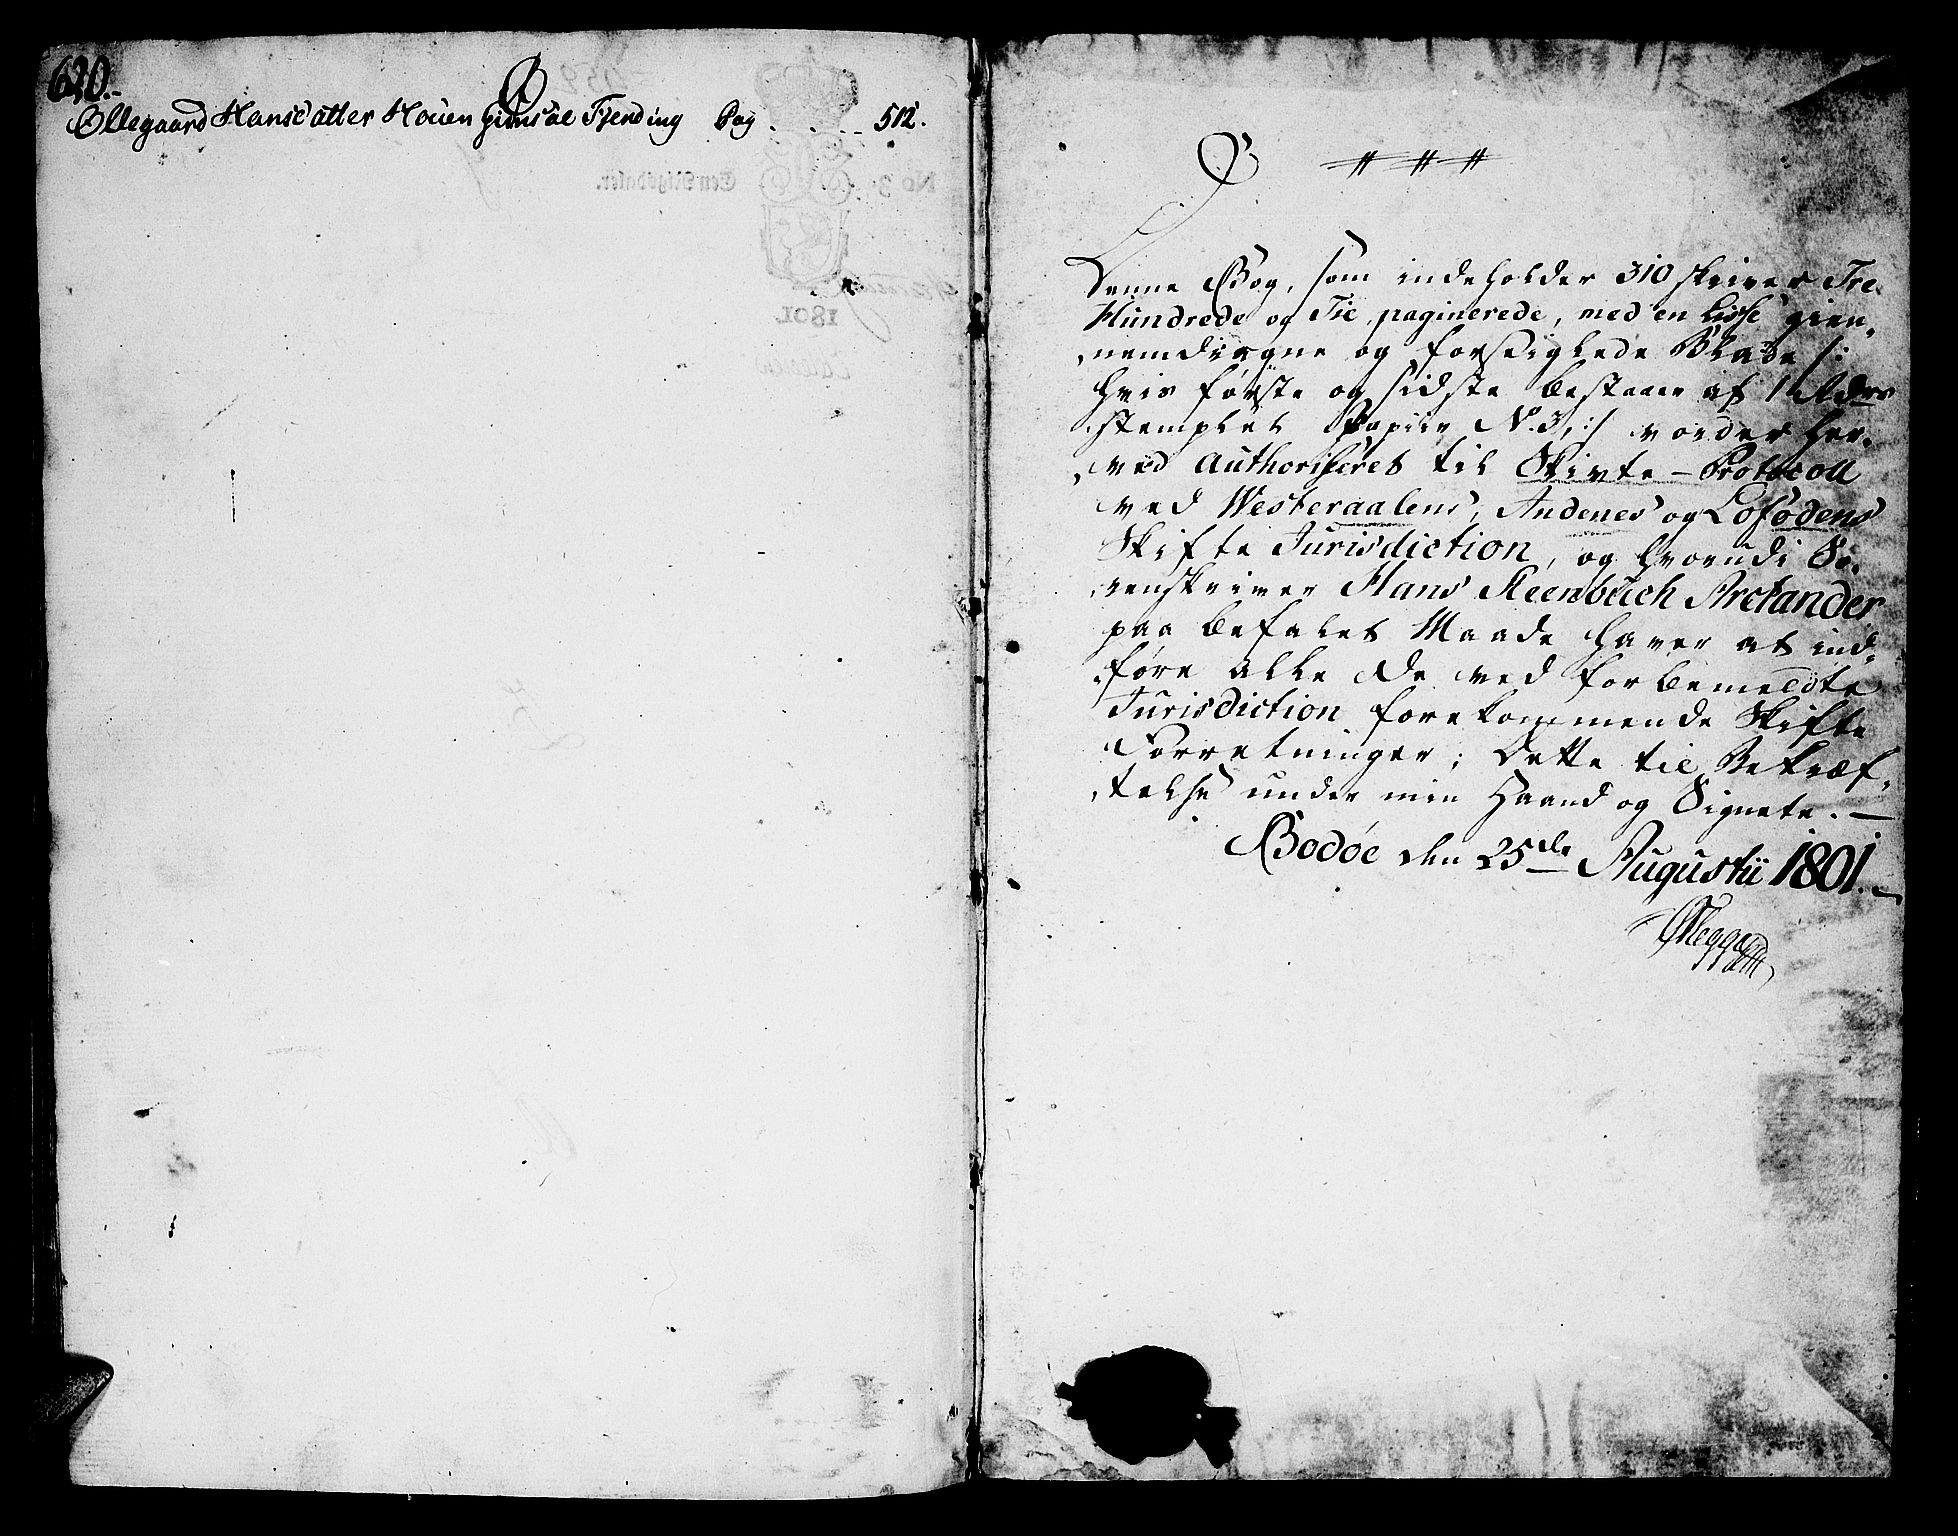 620.
Ø
Ollegaard Hansdatter Houen Gimsøe Fjerding Pag . . . . 512.
No 3.
Een Rigsdaler.
1801.
Denne Bog, som indeholder 310 skriver Tre
Hundrede og Tie, paginerede, med en Lidse gien-
nemdragne og forseiglede Blade /:
hvis første og sidste bestaaer af 1 Rdrs
stemplet Papiir No. 3, :/ vorder her-
ved Authoriseret til Skifte-Protocoll
ved Westeraalens, Andenes og Lofødens
Skifte Jurisdiction, og hvorudi So-
renskriver Hans Steenbuch Arctander
paa befalet Maade haver at ind-
føre alle de ved forbemeldte
Jurisdiction forekommende Skifte
Forretninger; Dette til Bekræf-
telse under min Haand og Signete. —
Bodøe den 25de Augustii 1801. —